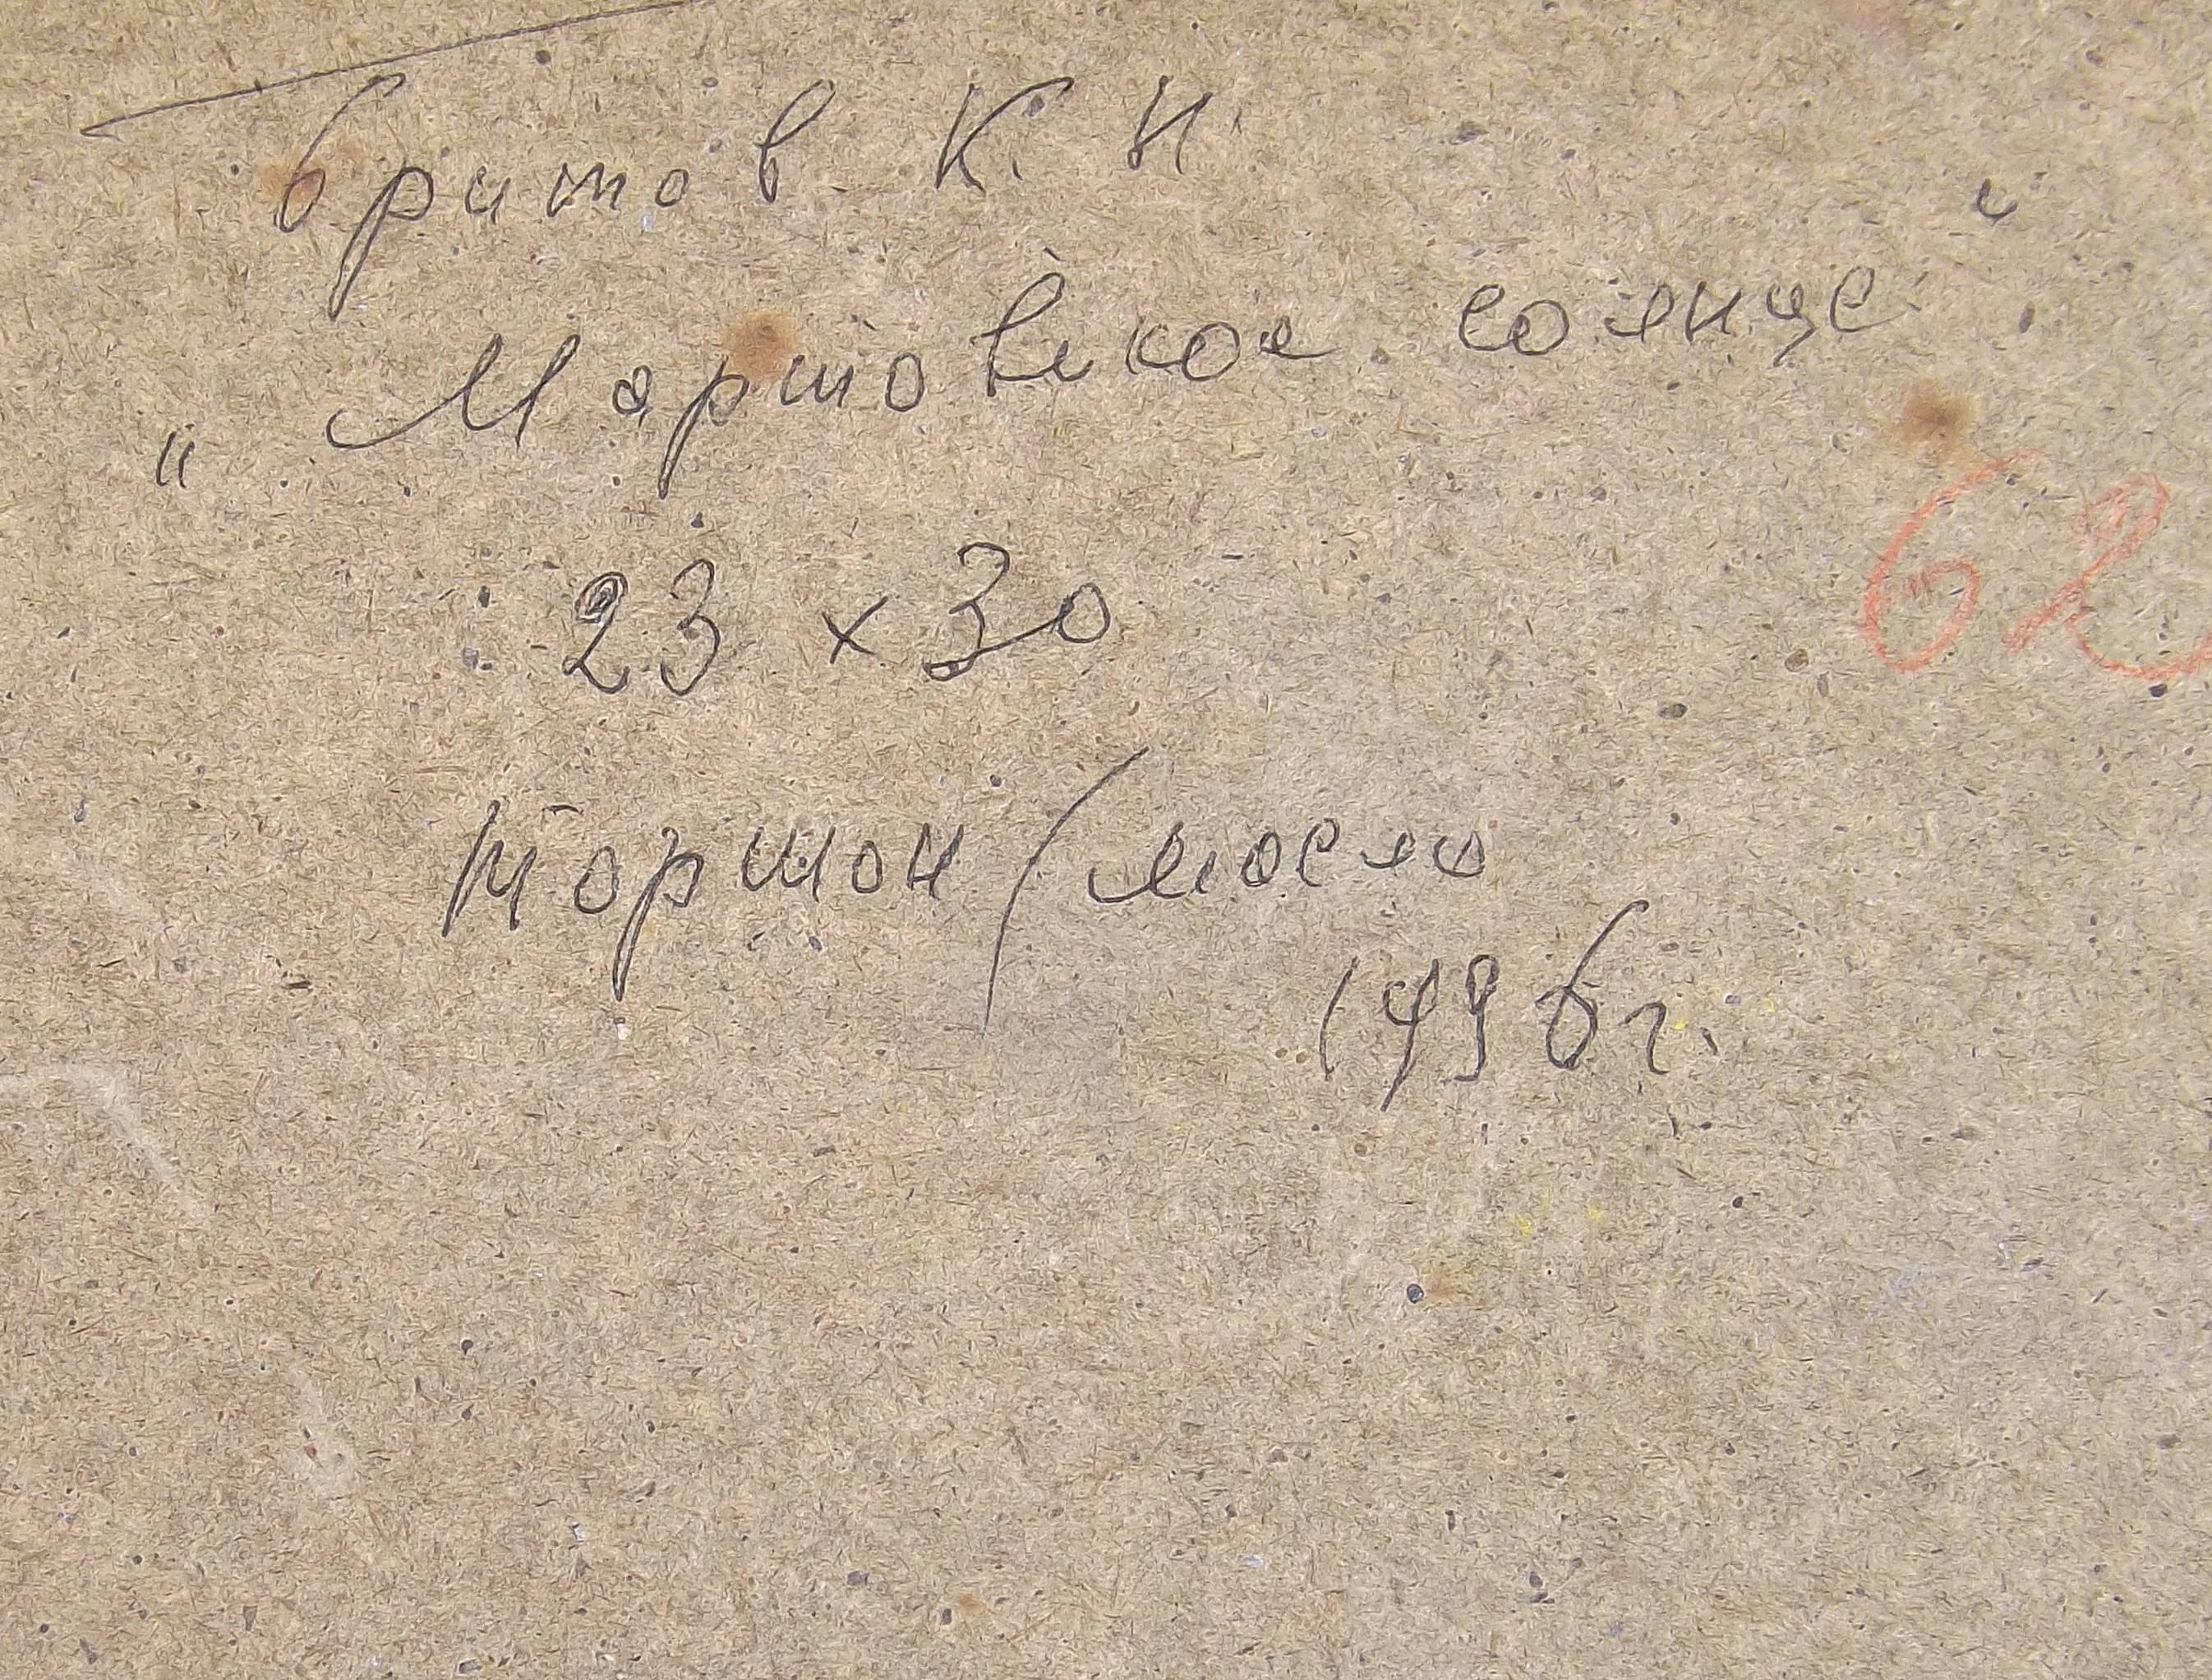 Бритов К. Н.
„Мартовское солнце“.
62
23 x 30
картон / масло
1996 г.